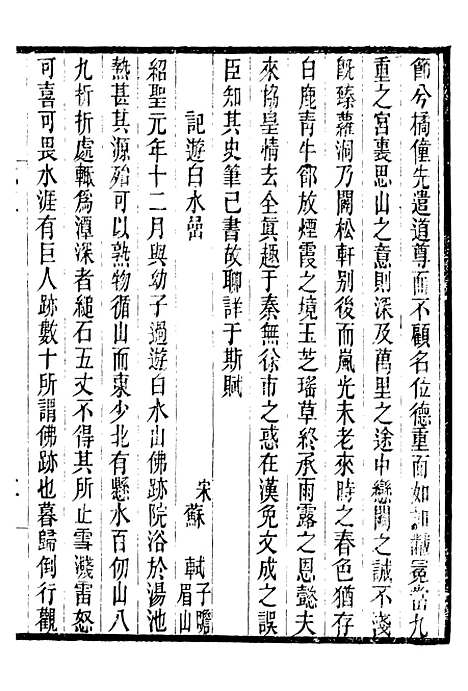 節兮橘僮先遣道尊而不顧名位德重而如加黻冕當九
重之宮裏思山之意則深及萬里之途中戀闕之誠不淺
既臻蘿洞乃闢松軒别後而嵐光未老來時之春色猶存
白鹿青牛郤放煙霞之境玉芝瑤草終承雨露之恩懿夫
來協皇情去全眞趣于秦無徐市之惑在漢免文成之誤
臣知其史筆已書故聊詳于斯賦
記遊白水嵒
宋蘇軾子瞻眉山
紹聖元年十二月與幼子過遊白水山佛跡院浴於湯池
熱甚其源殆可以熟物循山而東少北有懸水百仞山八
九折折處輒爲潭深者縋石五丈不得其所止雪濺雷怒
可喜可畏水涯有巨人跡數十所謂佛跡也暮歸倒行觀